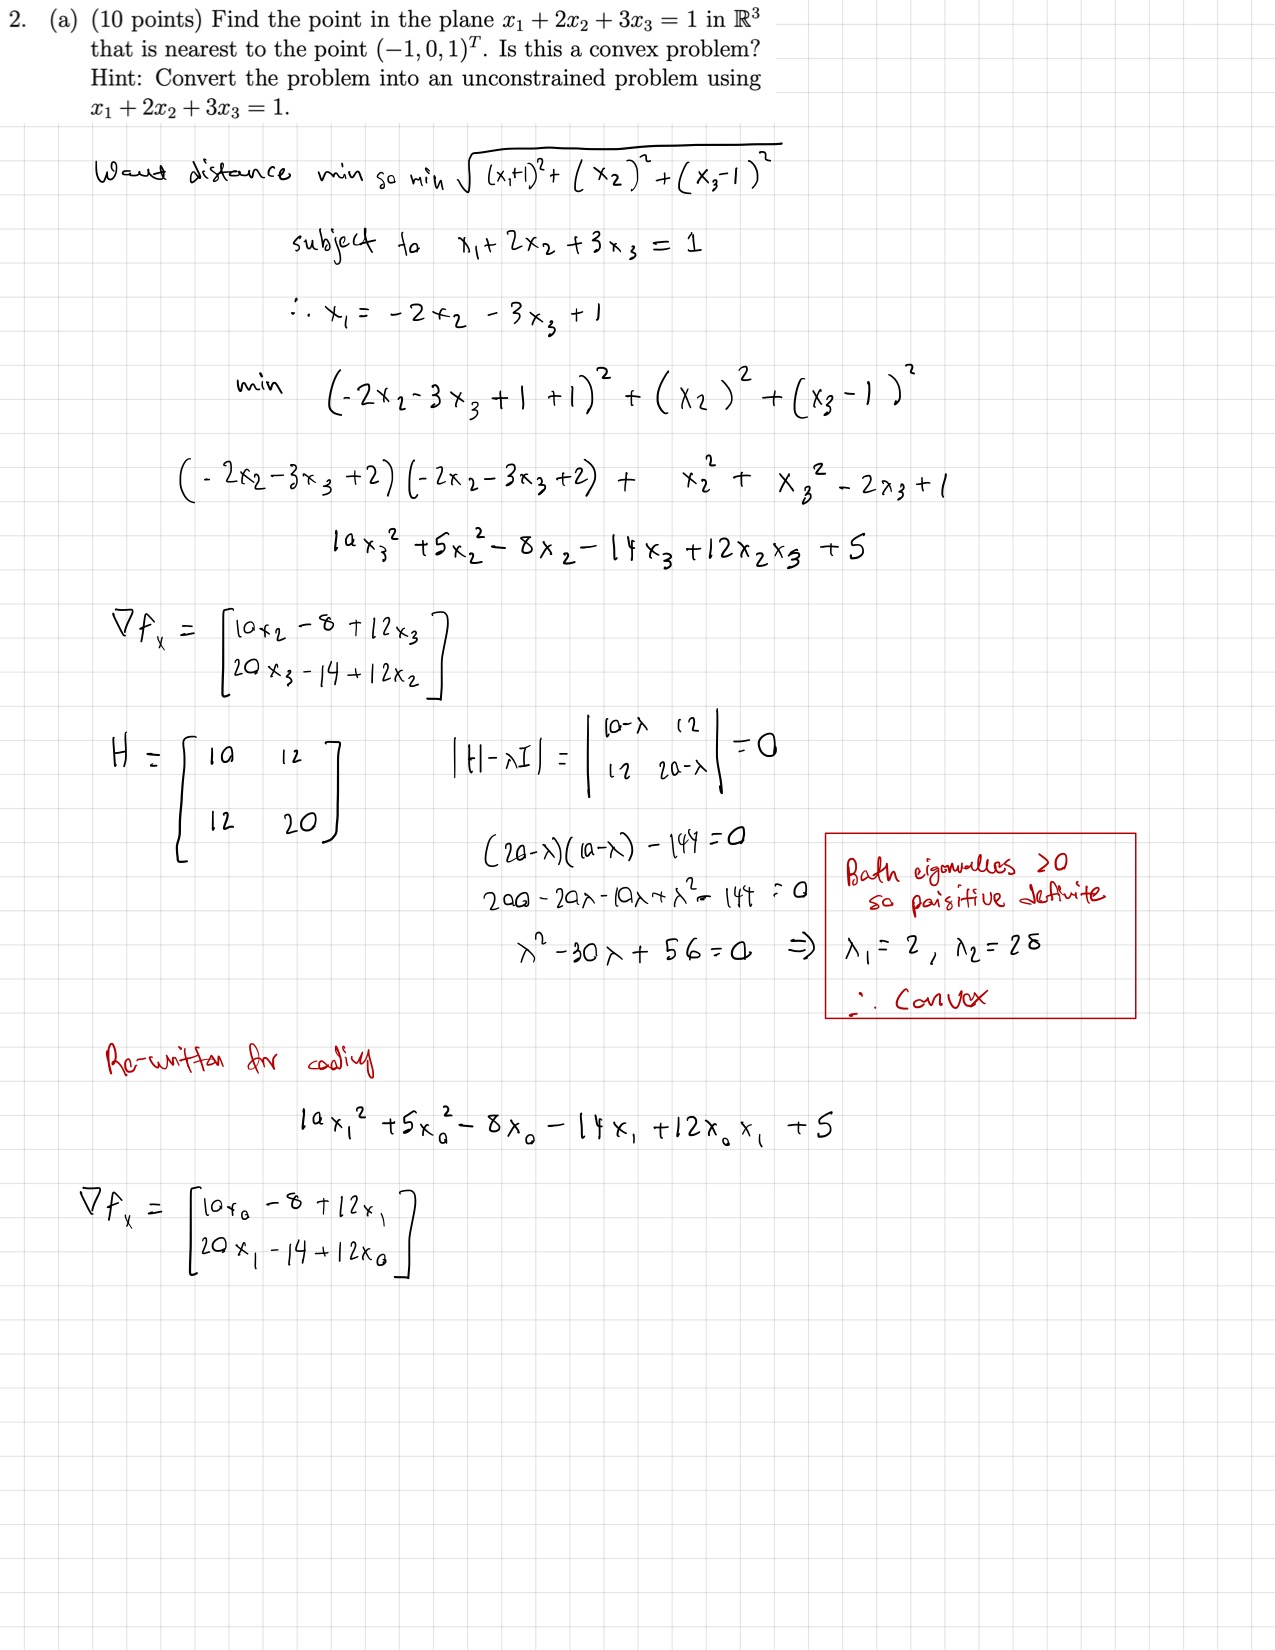 2. (a) (10 points) Find the point in the plane x₁ + 2x₂ + 3x₃ = 1 in ℝ³
that is nearest to the point (−1, 0, 1)ᵀ. Is this a convex problem?
Hint: Convert the problem into an unconstrained problem using
x₁ + 2x₂ + 3x₃ = 1.
Want distance min so min √((x₁+1)² + (x₂)² + (x₃-1)²)
subject to x₁ + 2x₂ + 3x₃ = 1
∴ x₁ = -2x₂ - 3x₃ + 1
min (-2x₂ - 3x₃ + 1 + 1)² + (x₂)² + (x₃ - 1)²
(-2x₂ - 3x₃ + 2)(-2x₂ - 3x₃ + 2) + x₂² + x₃² - 2x₃ + 1
10x₃² + 5x₂² - 8x₂ - 14x₃ + 12x₂x₃ + 5
∇fₓ = [10x₂ - 8 + 12x₃
20x₃ - 14 + 12x₂]
H = [10 12
12 20]
|H-λI| = |10-λ 12
12 20-λ| = 0
(20-λ)(10-λ) - 144 = 0
200 - 20λ - 10λ + λ² - 144 = 0
λ² - 30λ + 56 = 0 ⇒
Both eigenvalues >0
so paisitive definite
λ₁ = 2, λ₂ = 28
∴ Convex
Re-written for coding
10x₁² + 5x₀² - 8x₀ - 14x₁ + 12x₀x₁ + 5
∇fₓ = [10x₀ - 8 + 12x₁
20x₁ - 14 + 12x₀]